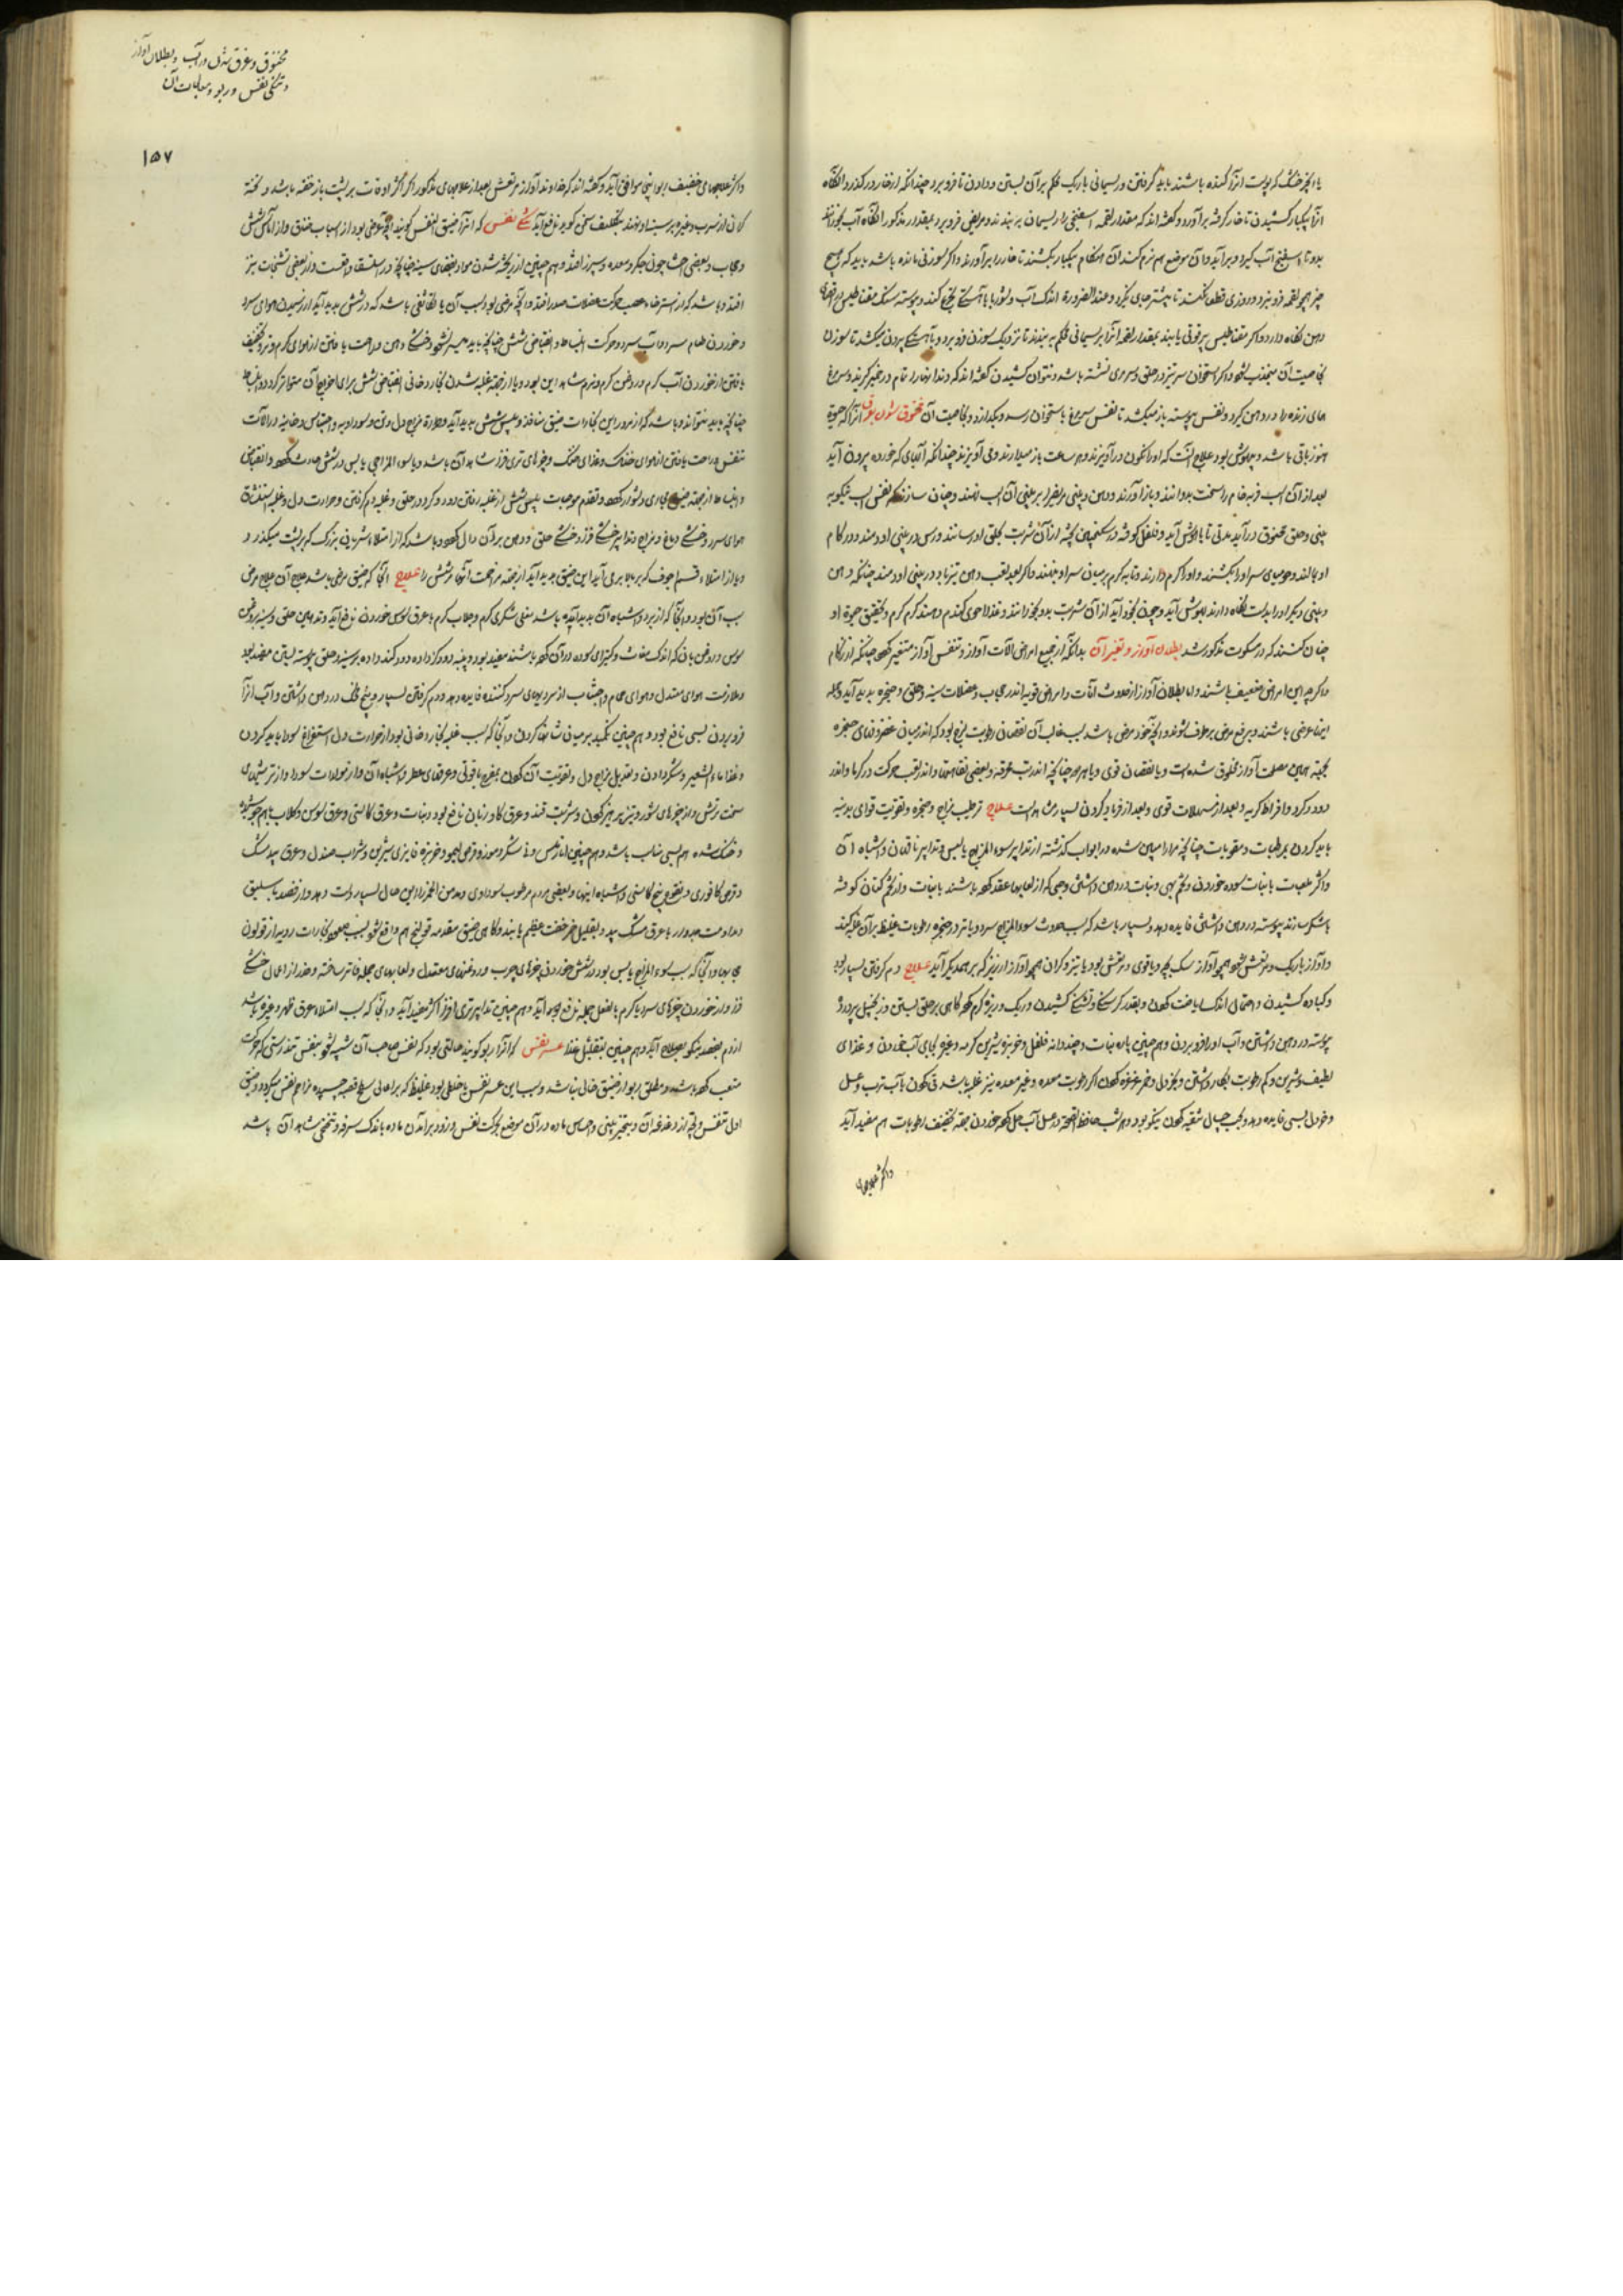 یا انجیر خشک که پوست انرا کنده باشند باید گرفتن و ریسمانی باریک محکم بران بستن و دادن تا فرو برد چندانکه از خار درگذرد و انگاه
انرا بیکبار کشیدن تا خار گرفته برآورد و گفته اند که مقدار لقمه اسفنجی را بریسمان بربندند و مریض فرو برد بمقدار مذکور انگاه آب بخورانند
بدو تا اسفنج آب گیرد و برآید و آن موضع هم نرم کند آن هنگام بیکبار بکشند تا خار را برآورد و اگر سوزنی مانده باشد باید که هیچ
چیز همچو لقمه فرو نبرد و روزی قطعی نکنند تا پیشتر جای نگیرد و عند الضرورة اندک آب و شوربا بآهستگی تجرع کند و پیوسته سنگ مقناطیس در
دهن نگاه دارد و اگر مقناطیس پرقوتی یابند بمقدار لقمه انرا بریسمانی محکم بربندند تا نزدیک سوزن فرو برد و بآهستگی بیرون میکشد تا سوزن
بخاصیت آن منجذب شود و اگر استخوان سرتیز در حلق و سر مری نشسته باشد و نتوان کشیدن گفته اند کرم و دندانها را تمام در خمیر گیرند و سر مرغ
های زنده را در دهن گیرد و نفس پیوسته باز میکشد تا نفس سر مرغ باستخوان رسد و بگدازد و بخاصیت آن مخنوق شدن بغرق انرا که حیوة
هنوز باقی باشد و بیهوش بود علاج آنست که او را نگون در آویزند و هر ساعت باز میدارند و می آویزند چندانکه آبهای که خورده بیرون آید
بعد از آن اسب فربه خام را سخت بدوانند و باز آورند و دهن و بینی مریض را بر بینی آن اسب نهند و چنان سازند که نفس اسب نیکو به
بینی و حلق مخنوق در آید مدتی تا باهوش آید و فلفل کوفته در سکنجبین پخته از آن شربت بحلق او رسانند و پس در بینی او دمند و در کام
او مالند و مویهای سر او را بکشند و او را گرم دارند و تابه گرم بر میان سر او بنهند و اگر بعد لقب دهن نیز باد در بینی او دمند چنانکه دهن
و بینی دیگر او را بدست نگاه دارند بهوش آید و چون بخود آید از آن شربت بدو بخورانند و غذا حسوی گندم دهند گرم گرم و تحقیق حیوة او
چنان کنند که در سکوت مذکور شد بطلان آواز و تغیر آن بدانکه از جمیع امراض آلات آواز و تنفس آواز متغیر گردد چنانکه از زکام
و اگرچه این امراض ضعیف باشند و اما بطلان آواز از حدوث آفات و امراض قویه اندر حجاب و عضلات سینه و حلق و حنجره پدید آید و جمله
اینها عرضی باشند و برفع مرض برطرف شوند و انچه خود مرض باشد بسبب غالب آن نقصان رطوبت لزج بود که اندر میان غضروفهای حنجره
بجهت همین مصلحت آواز مخلوق شده است و یا نقصان قوی و یا هر دو چنانکه اندر تب محرقه و بعضی نقاهتها و اندر تعب حرکت در گرما و اندر
دود و گرد و افراط گریه و بعد از مسهلات قوی و بعد از فریاد کردن بسیار مشاهدست علاج ترطیب مزاج و حنجره و تقویت قوای بدنیه
باید کردن بمرطبات و مقویات چنانکه مرارا مبین شده در ابواب گذشته از تدابیر سوء المزاج یابس و تدابیر ناقهان و اشباه آن
و اگر ملعبات با نبات سوده خوردن و تخم بهی و نبات در دهن داشتن و حبی که از لعابها عقد کرده باشند با نبات و از تخم کتان کوفته
با شکر سازند پیوسته در دهن داشتن فایده دهد و بسیار باشد که سبب حدوث سوء المزاج سرد و یا تر در حنجره رطوبات غلیظه بر آن غلبه کند
و آواز باریک و مرتعش شود همچو آواز سگ بچه و یا قوی و مرتعش بود یا تیز و گران همچو آواز ارزیز که بر همدیگر آید علاج دم گرفتن بسیار بود
و کباده کشیدن و احتمالی اندک ریاضت کردن و بقدر گرسنگی و تشنگی کشیدن و ریگ و ریزه گرم کرده گاهی بر حلق بستن و زنجبیل پرورده
پیوسته در دهن داشتن و آب او را فرو بردن و هم چنین پاره نبات و چند دانه فلفل و خونزه شیرین کرده و عوض بجای آب خوردن و غذای
لطیف و شیرین و کم رطوبت بکار داشتن و بخردل و غیره غرغره کردن اگر رطوبت معده و غیر معده نیز غلبه باشد قی کردن بآب ترب و عسل
و خردل بسی فایده دهد و بحب چبال تنقیه کردن نیکو بود و هر شب حافظ الصحة در عسل آب حل کرده خوردن بجهة تخفیف رطوبات هم مفید آید
و اکثر علاجهای
مخنوق و غرق شدن در آب و بطلان آواز
و تنگی نفس و ربو و معالجات آن
۱۵۷
و اکثر علاجهای خفیف ربو اینجا موافق آید و گفته اند که خداوند آواز مرتعش بعد از علاجهای مذکور اگر اکثر اوقات بر پشت باز خفته باشد و تخته
گران از سرب و غیره بر سینه او نهند بتکلیف سخن گوید نافع آید تنگی نفس که انرا ضیق النفس گویند انچه عرضی بود از اسباب خناق و از آماس شش
و حجاب و بعضی احشا چون جگر و معده و سپرز افتد و هم چنین از ریخته شدن مواد بفضای سینه چنانچه در استسقا و اقعست و از بعضی تشنجات نیز
افتد و باشد که از استرخاء عصب حرکت عضلات صدر افتد و انچه مرضی بود سبب آن یا تکاثفی باشد که در شش پدید آید از رسیدن هوای سرد
و خوردن طعام سرد و آب سرد و حرکت انبساط و انقباض شش چنانچه باید میسر نشود و خشکی دهن و راحت یافتن از هوای گرم و تر و تخفیف
یافتن از خوردن آب گرم و روغن گرم و نرم شاهد این بود و یا از جهة غلبه شدن بخار دخانی انقباض شش برای اخراج آن متواتر گردد و انبساط
چنانچه باید نتواند و باشد که از مرور این بخارات ضیق منافذ و یبس شش پدید آید و حرارت مزاج دل و دق و سوداویه و احتباس دخانیه در آلات
تنفس و راحت یافتن از هوای خنک و غذای خنک و چیزهای تری فزا شاهد آن باشد و یا سوء المزاجی یابس در شش حادث گردد و انقباض
و انبساط از جهة ضیق مجاری دشوار گردد و تقدم موجبات یبس شش از غلبه رفتن دود و گرد در حلق و غلبه دم گرفتن و حرارت دل و غلبه استنشاق
هوای سرد و خشکی دماغ و مزاج و تدابیر خشکی فزا و خشکی حلق و دهن بر آن دال گردد و باشد که از امتلاء شریانی بزرگ که بر پشت میگذرد
و یا از امتلاء قسم اجوف که بر بالا برمی آید این ضیق پدید آید از جهة مزاحمت آنها مر شش را علاج آنجا که ضیق عرضی باشد علاج آن علاج مرض
سبب آن بود و آنجا که از برد و اشباه آن پدید آمده باشد مغلی شکری گرم و جلاب گرم با عرق سوس خوردن نافع آید و تدهین حلق و سینه بروغن
سوس و روغن بان که اندک مغاث و کتیرای سوده در آن کرده باشند مفید بود و پنبه دود کرد داده دود کنند داده بر سینه و حلق پیوسته بستن مفید بود
و ملازمت هوای معتدل و هوای حمام و اجتناب از سردیهای سرد کننده فایده دهد و دم گرفتن بسیار و بیخ مهک در دهن داشتن و آب انرا
فرو بردن بسی نافع بود و هم چنین تکمید بر میان شانها کردن و آنجا که سبب غلبه بخار دخانی بود از حرارت دل استفراغ سودا باید کردن
و غذا ماء الشعیر و شکر دادن و تعدیل مزاج دل و تقویت آن کردن بمفرح یاقوتی و عرقهای عطر و اشباه آن و از مولدات سودا و از ترشیهای
سخت ترش و از چیزهای شور و تیز پرهیز کردن و شربت قند و عرق گاوزبان نافع بود و نبات و عرق کاسنی و عرق سوس و گلاب بهم جوشیده
و خنک شده هم بسی مناسب باشد و هم چنین انار ملس و نی شکر و موز و قرص لیمو و خربزه فایزی شیرین و شراب صندل و عرق بیدمشک
و قرص کافوری و نقوع بیخ کاسنی و اشباه اینها و بعضی مردم مرطوب سوداوی و مدمن الخمر را این حال بسیار دست دهد و از فصد باسلیق
و مداومت جدوار با عرق مشک بید و تقلیل خمر خفت عظیم یابند و گاهی ضیق مقدمه قولنج هم واقع شود بسبب صعود بخارات ردیه از قولون
می بینها و آنجا که سبب سوء المزاج یابس بود در شش خوردن چیزهای چرب و روغنهای معتدل و لعابهای جمله فاتر ساخته و حذر از اعمال خشکی
فزا و از خوردن چیزهای سرد یا گرم بالفعل جمله نافع آید و هم چنین تدابیر تری افزا اکثر مفید آید و آنجا که سبب امتلاء عروق ظهر و غیره باشد
از دم بفصد نیکو بصلاح آید و هم چنین بتقلیل غذا عسر نفس که انرا ربو گویند حالتی بود که نفس صاحب آن شبیه شود بنفس تندرستی که حرکت
متعب کرده باشد و مطلق ربو از ضیق خالی نباشد و سبب این عسر نفس یا خلطی بود غلیظ که بر اعالی سطح قصبه چسبیده مزاحم نفس میگردد و ضیق
اول تنفس و انچه از دغدغه آن و تنخیر بینی و احساس ماده در آن موضع بحرکت نفس و زود برآمدن ماده باندک سرفه و تنحنحی شاهد آن باشد